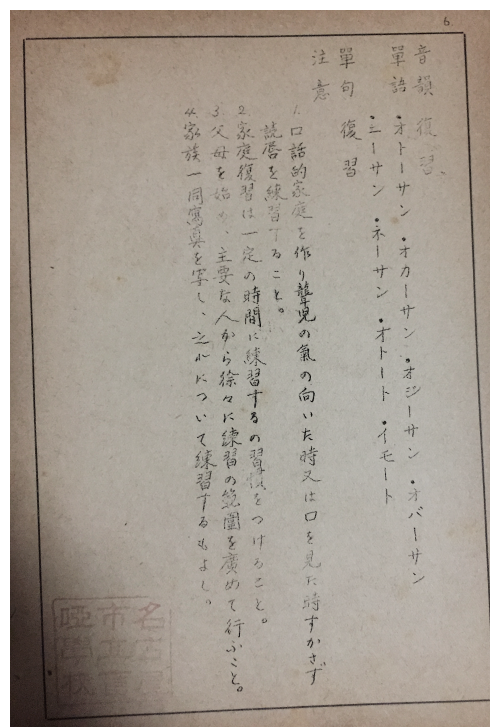 6
音韻 復習、
單語 •オトーサン •オカーサン •オジーサン •オバーサン
•ニーサン •ネーサン •オトート •イモート
單句 復習
注意
1. 口話的家庭を作り聾児の氣の向いた時又は口を見た時すかさず
読唇を練習すること。
2. 家庭復習は一定の時間に練習するの習慣をつけること。
3. 父母を始め、主要な人から徐々に練習の範圍を廣めて行ふこと。
4. 家族一同寫真を寫し、之れについて練習するもよし。
名古屋
市立盲
唖學校